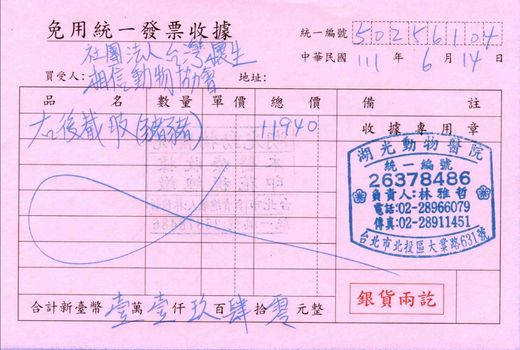 免用統一發票收據
統一編號 50256104
中華民國 111 年 6 月 14 日
買受人: 社團法人台灣懷生相信動物協會 地址:
品名 數量 單價 總價 備註
右後截肢(豬豬) 11940
收據專用章
湖光動物醫院
統一編號
26378486
負責人:林雅哲
電話:02-28966079
傳真:02-28911451
台北市北投區大業路631號
銀貨兩訖
合計新臺幣 壹萬壹仟玖百肆拾零元整